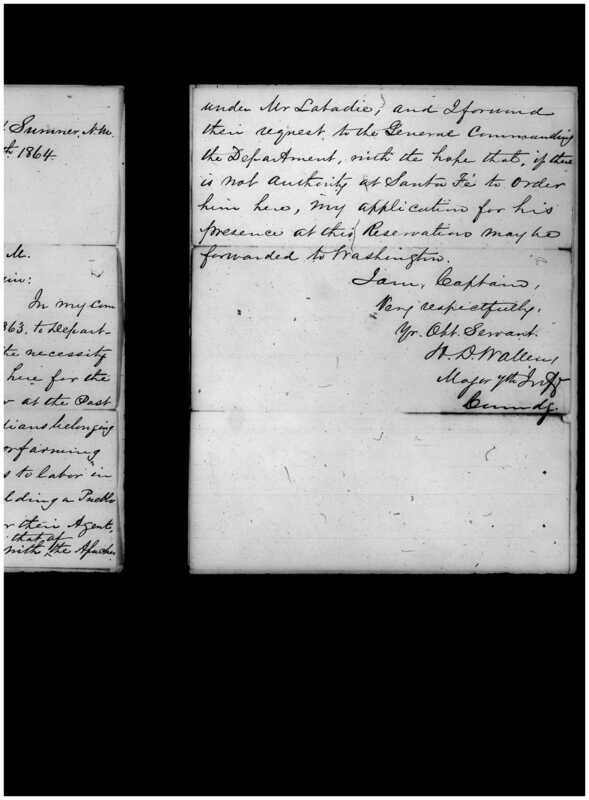 Sumner, N.M.
th 1864.
M.
In my com
863. to Depart-
te necessity
here for the
at the Post
dians belonging
or farming
s to labor in
lding a Pueblo
r their Agent,
that of
with the Apaches
under Mr Labadie, and I forward
their request to the General Commanding
the Department, with the hope that, if there
is not authority at Santa Fé to order
him here, my application for his
presence at this Reservation may be
forwarded to Washington.
I am, Captain,
Very respectfully,
Yr. Obt. Servant.
H. D. Wallen,
Major 7th Inf
Commdg.